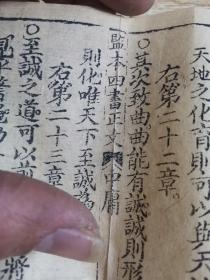 天地之化育則可以與天
右第二十二章
○其次致曲曲能有誠誠則形
監本四書正文 中庸
則化唯天下至誠為
右第二十三章
○至誠之道可以前